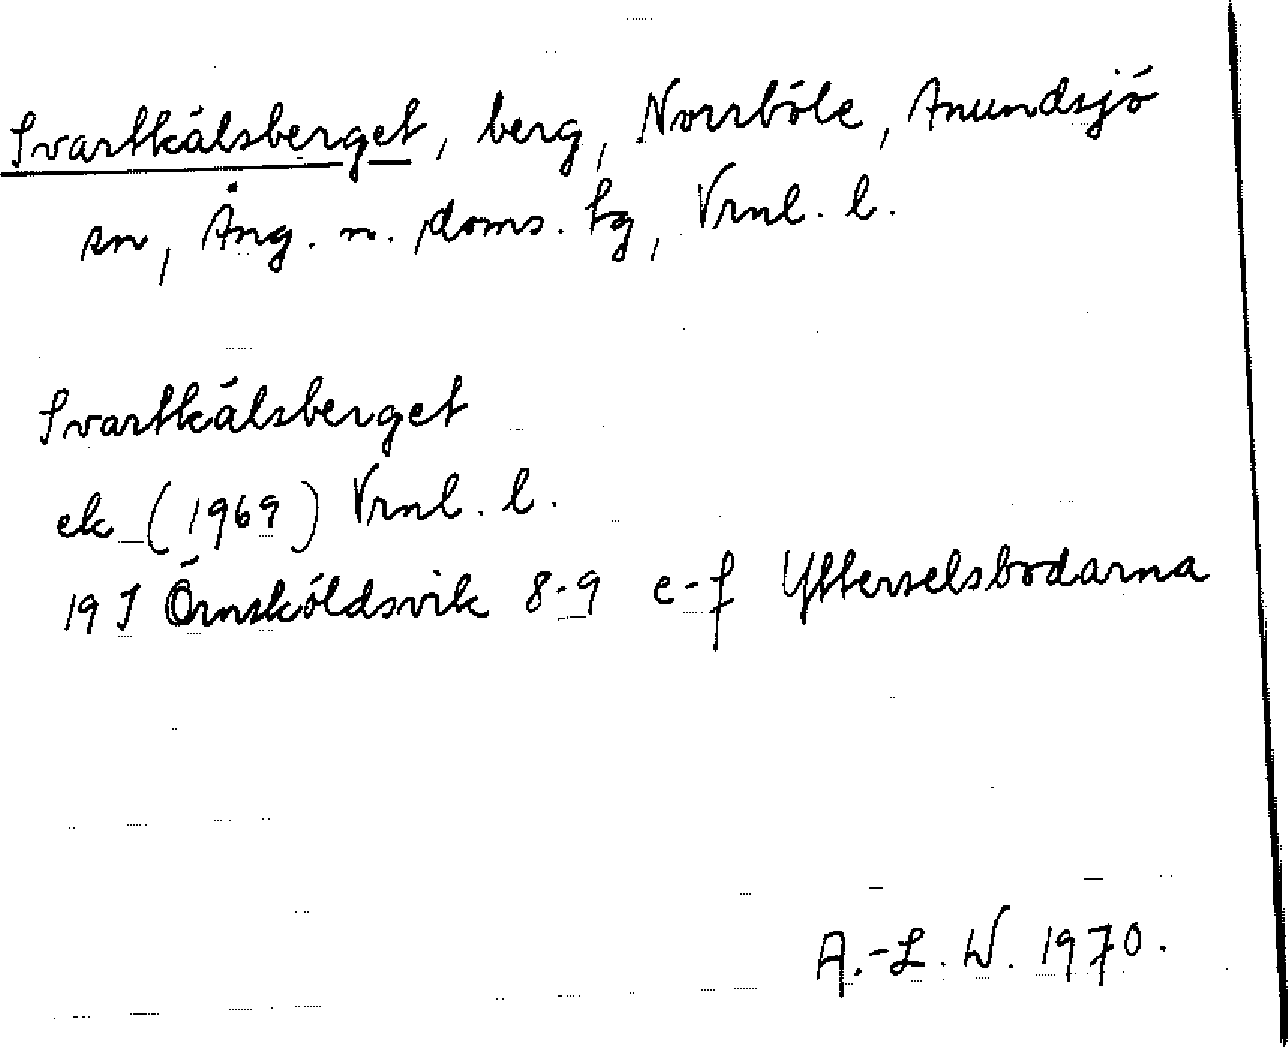 Svartkålsberget, berg, Norrböle, Anundsjö
sn, Ång. n. doms. tg, Vrnl. l.
Svartkålsberget
ek (1969) Vrnl. l.
19 I Örnsköldsvik 8-9 e-f Ytterselsbodarna
A.-L. W. 1970.